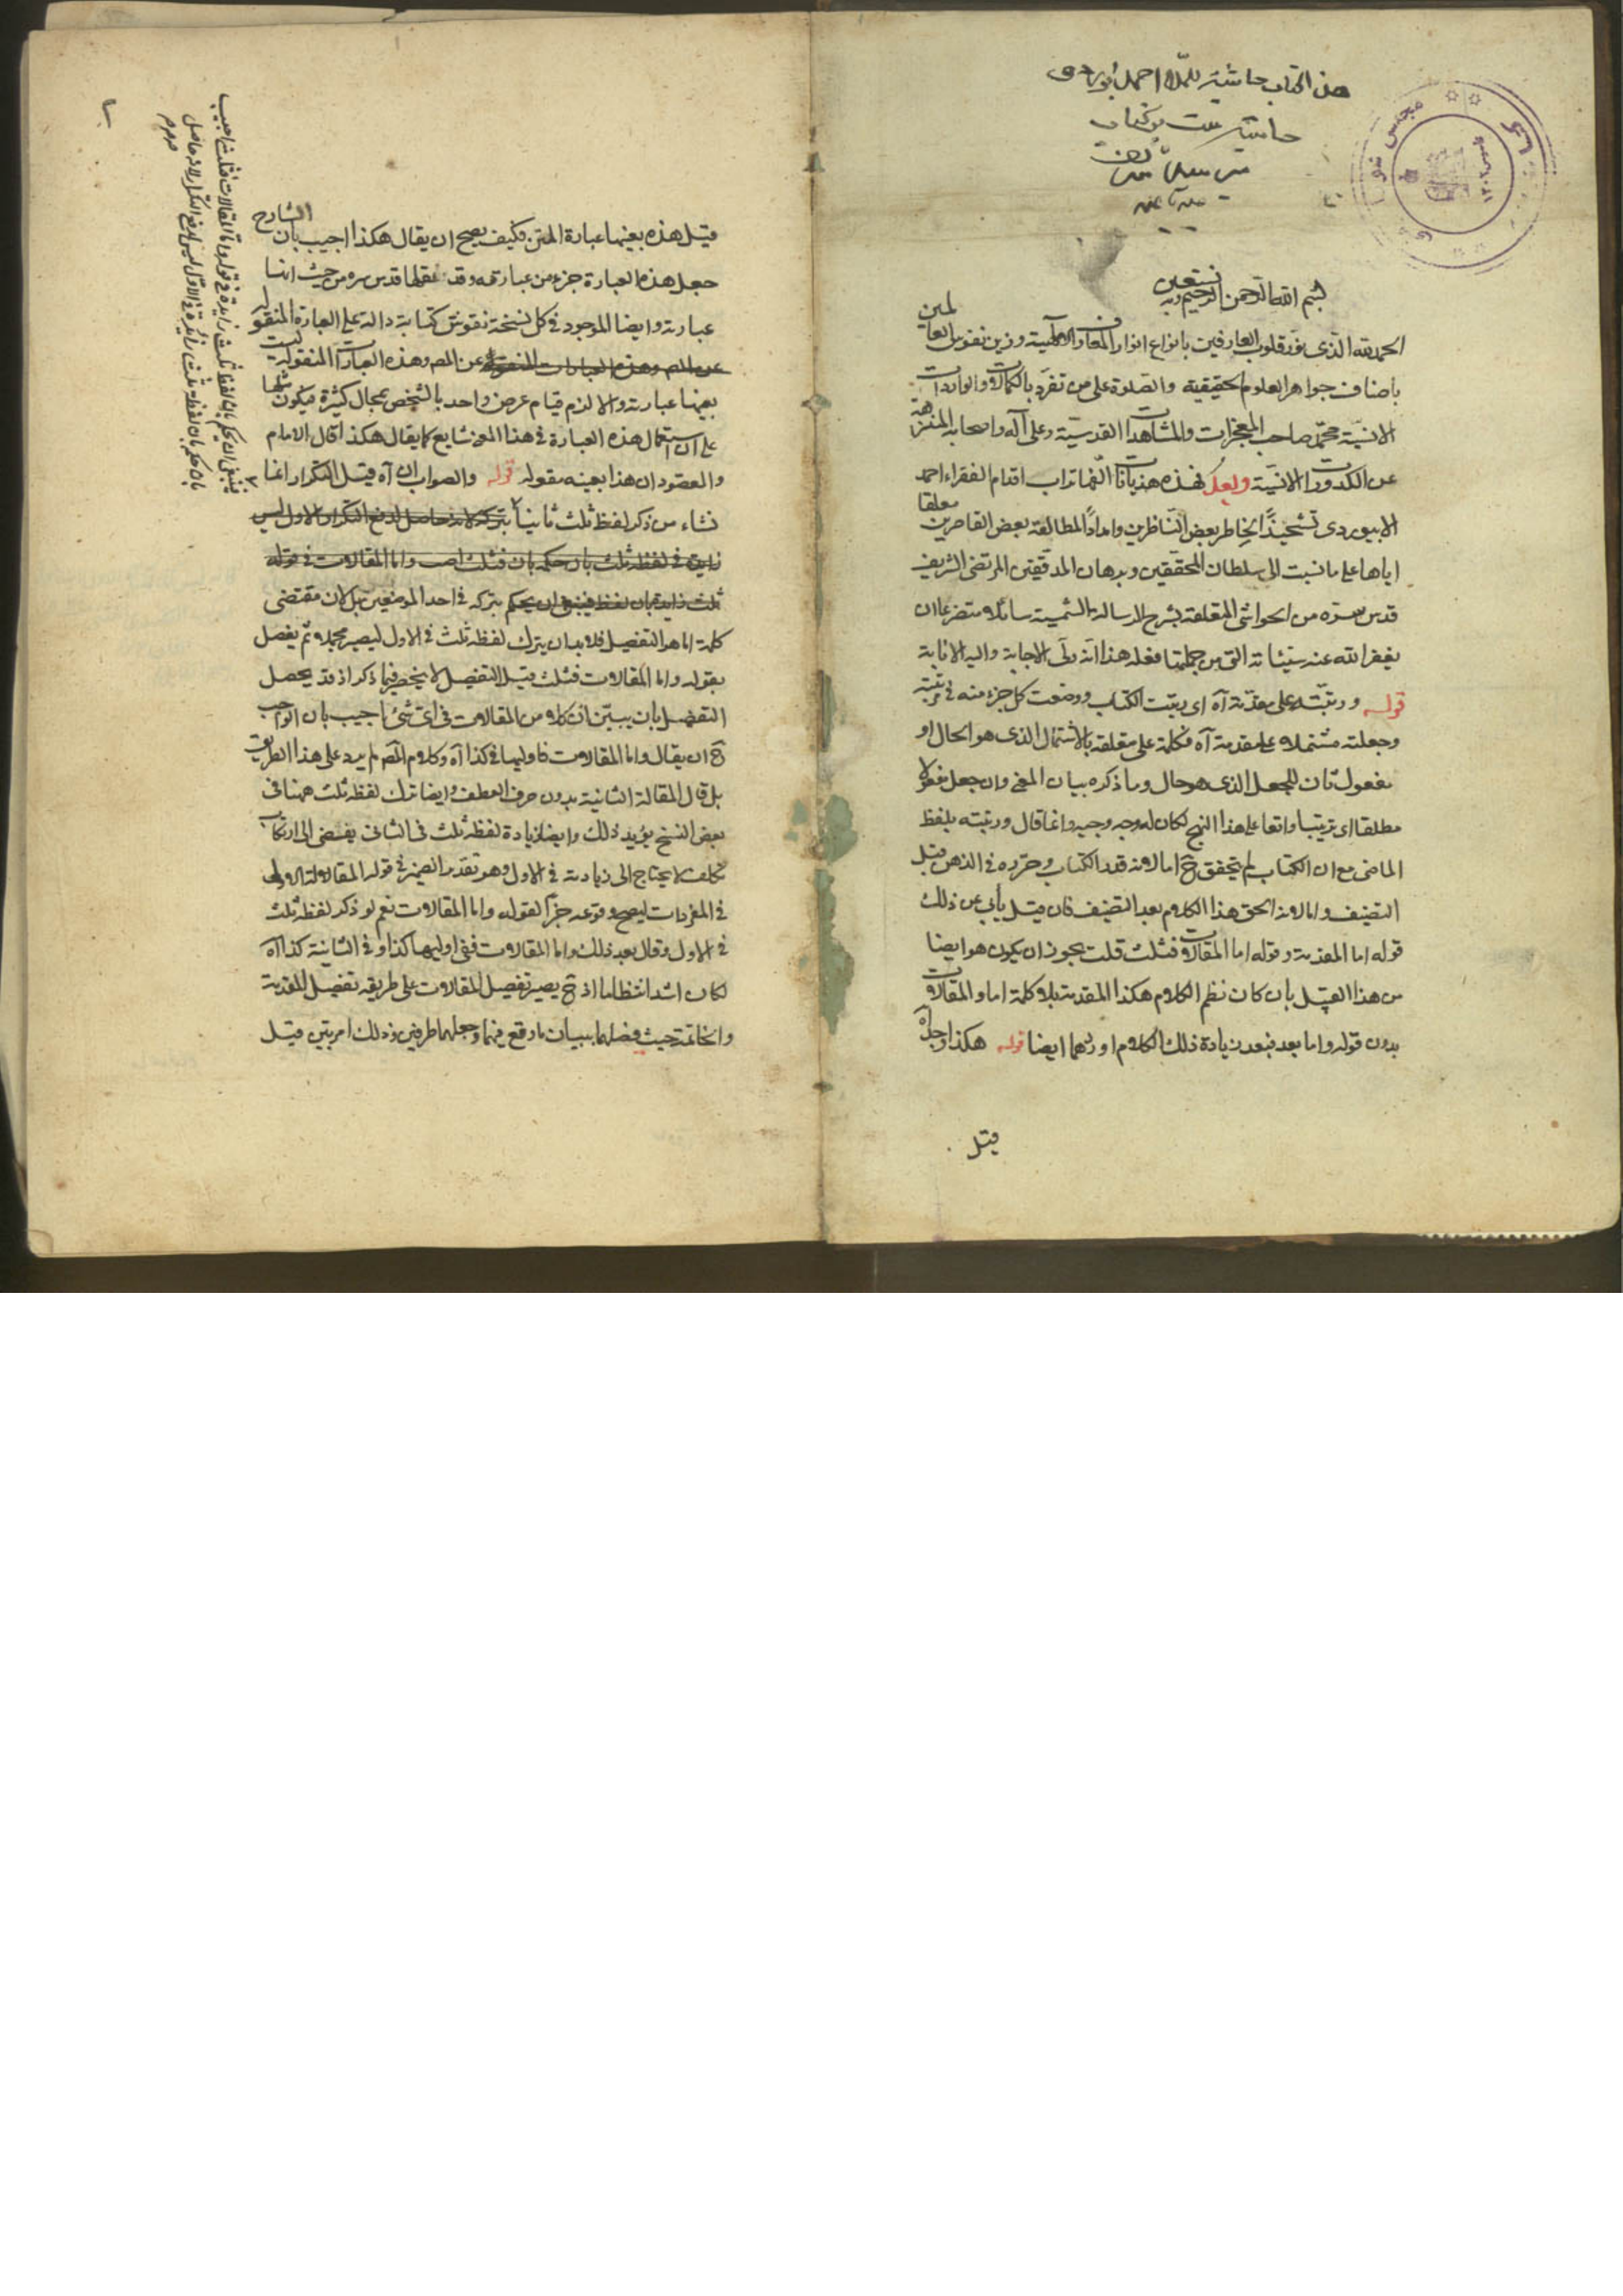 هذا الكتاب حاشية للملا احمد ابيوردى
حاشية
بسم الله الرحمن الرحيم وبه نستعين
الحمد لله الذى نور قلوب العارفين بانواع انوار المعارف الالهية وزين نفوس العالمين
باصناف جواهر العلوم الحقيقية والصلوة على من تفرد بالكمالات والواردات
الانسية محمد صاحب المعجزات والمشاهدات القدسية وعلى آله واصحابه المنزهة
عن الكدورات الانسية وبعد فهذه هذيانات انهاها تراب اقدام الفقراء احمد
الابيوردى تشحيذا لخاطر بعض الناظرين وامدادا لمطالعة بعض القاصرين معلقا
اياها على ما نسبت الى سلطان المحققين وبرهان المدققين المرتضى الشريف
قدس سره من الحواشى المتعلقة بشرح الرسالة الشمسية سائلا ومتضرعا ان
يغفر الله عنه سيئاته التى من جملتها فعله هذا انه ولى الاجابة واليه الانابة
قوله ورتبته على مقدمة آه اى رتبت الكتاب ووضعت كل جزء منه فى مرتبته
وجعلته مشتملا على مقدمة آه فكلمة على متعلقة بالاشتمال الذى هو الحال او
مفعول ثان للجعل الذى هو حال وما ذكره بيان المعنى وان جعل مفعولا
مطلقا اى ترتيبا واقعا على هذا النهج لكان له وجه وجيه وانما قال ورتبته بلفظ
الماضى مع ان الكتاب لم يتحقق ح اما لانه قدر الكتاب وحرره فى الذهن قبل
التصنيف واما لانه الحق هذا الكلام بعد التصنيف فان قيل يأبى عن ذلك
قوله اما المقدمة وقوله اما المقالات فثلث قلت يجوز ان يكون هو ايضا
من هذا القبيل بان كان نظم الكلام هكذا المقدمة بلا كلمة اما والمقالات
بدون قوله واما بعد فبعد زيادة ذلك الكلام اوردهما ايضا قوله هكذا وجد آه
قيل
قيل هذه بعينها عبارة المتن فكيف يصح ان يقال هكذا اجيب بان الشارح
جعل هذه العبارة جزء من عبارته وقد نقلها قدس سره من حيث انها
عبارته وايضا الموجود فى كل نسخة نقوش كتابة دالة على العبارة المنقولة
عن المص وهذه العبارات المنقولة عن المص وهذه العبارات المنقولة ليست
بعينها عبارته والا لزم قيام عرض واحد بالشخص بمحال كثيرة فيكون مثلها
على ان استعمال هذه العبارة فى هذا المعنى شايع كما يقال هكذا قال الامام
والمقصود ان هذا بعينه مقوله قوله والصواب ان آه قيل التكرار انما
نشاء من ذكر لفظ ثلث ثانيا بتركه لانه حاصل لدفع التكرار الاول ليس
زايدة فى لفظه ثلث بان حكم بان واما المقالات فى قوله
ثلث زايدة بان لفظ فينبغى ان يحكم بتركه فى احد الموضعين بل لان مقتضى
كلمة اما هو التفصيل فلا بد ان يترك لفظه ثلث فى الاول ليصير مجملا ثم يفصل
بقوله واما المقالات فثلث قيل التفصيل لا ينحصر فيما ذكر اذ قد يحصل
التفصيل بان يبين ان كلا من المقالات فى اى شئ اجيب بان الواجب
ح ان يقال واما المقالات فاوليها فى كذا آه وكلام المص لم يرد على هذا الطريق
بل قال المقالة الثانية بدون حرف العطف وايضا ترك لفظه ثلث ههنا فى
بعض النسخ يؤيد ذلك وايضا زيادة لفظه ثلث فى الثانى يفضى الى ارتكاب
تكلف لا يحتاج الى زيادته فى الاول وهو تقدير الضمير فى قوله المقالة الاولى
فى المفردات ليصح وقوعه جزأ لقوله واما المقالات نعم لو ذكر لفظه ثلث
فى الاول وقال بعد ذلك واما المقالات ففى اوليها كذا وفى الثانية كذا آه
لكان اشد انتظاما اذ ح يصير تفصيل المقالات على طريقه تفصيل المقدمة
والخاتمة حيث فصلهما ببيان ما وقع فيهما وجعلهما طرفين وذلك امر بين قيل